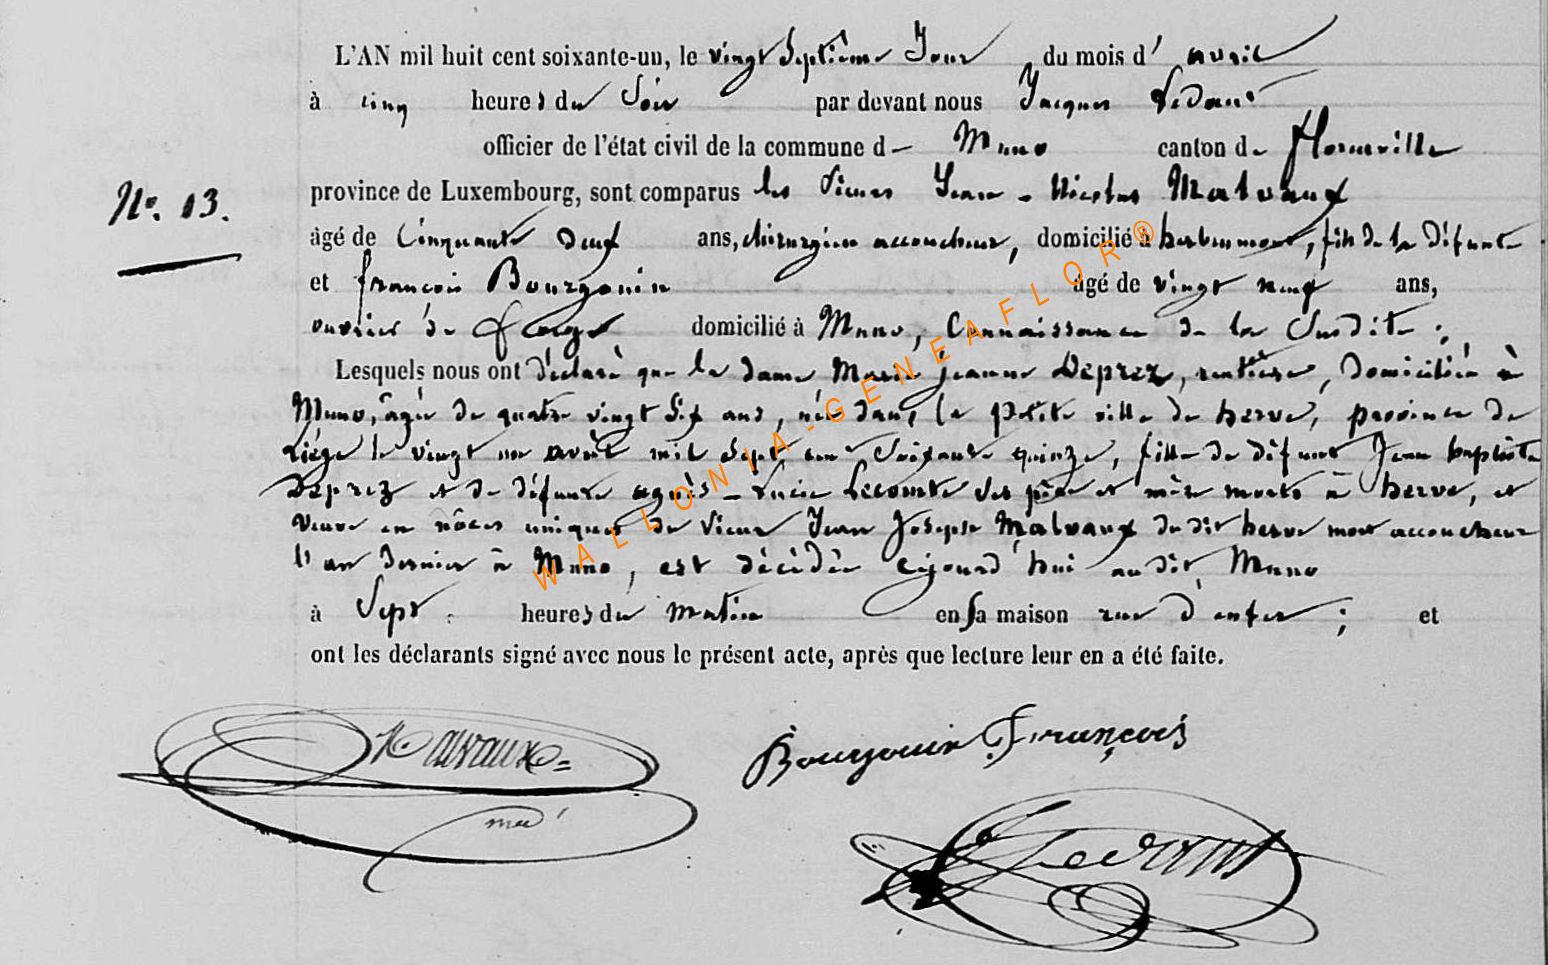 L'AN mil huit cent soixante-un, le vingt Septième Jour du mois d' avril
à cinq heures du Soir par devant nous Jacques
officier de l'état civil de la commune de Muno canton de Florenville
N°. 13.
province de Luxembourg, sont comparus les Sieurs Jean-Nicolas Malvaux
âgé de Cinquante deux ans, chirurgien accoucheur, domicilié à herbeumont, fils de la défunte
et françois Bourgouin âgé de vingt neuf ans,
ouvrier de forge domicilié à Muno, Connaissance de la Susdite ;
Lesquels nous ont déclaré que la dame Marie jeanne Deprez, rentière, Domiciliée à
Muno, âgée de quatre vingt Six ans, née dans la petite ville de herve, province de
Liége le vingt un avril mil Sept cent Soixante quinze, fille de défunt Jean baptiste
Deprez et de défunte agnès-Lucie Lecomte Ses père et mère morts à herve, et
veuve en nôces uniques du Sieur Jean Joseph Malvaux du dit herve mort accoucheur
l'an dernier à Muno, est décédée cejourd'hui audit Muno
à Sept heures du matin en Sa maison rue d'enfer ; et
ont les déclarants signé avec nous le présent acte, après que lecture leur en a été faite.
Malvaux
Bourgouin François
WALLONIA-GENEAFLOR®